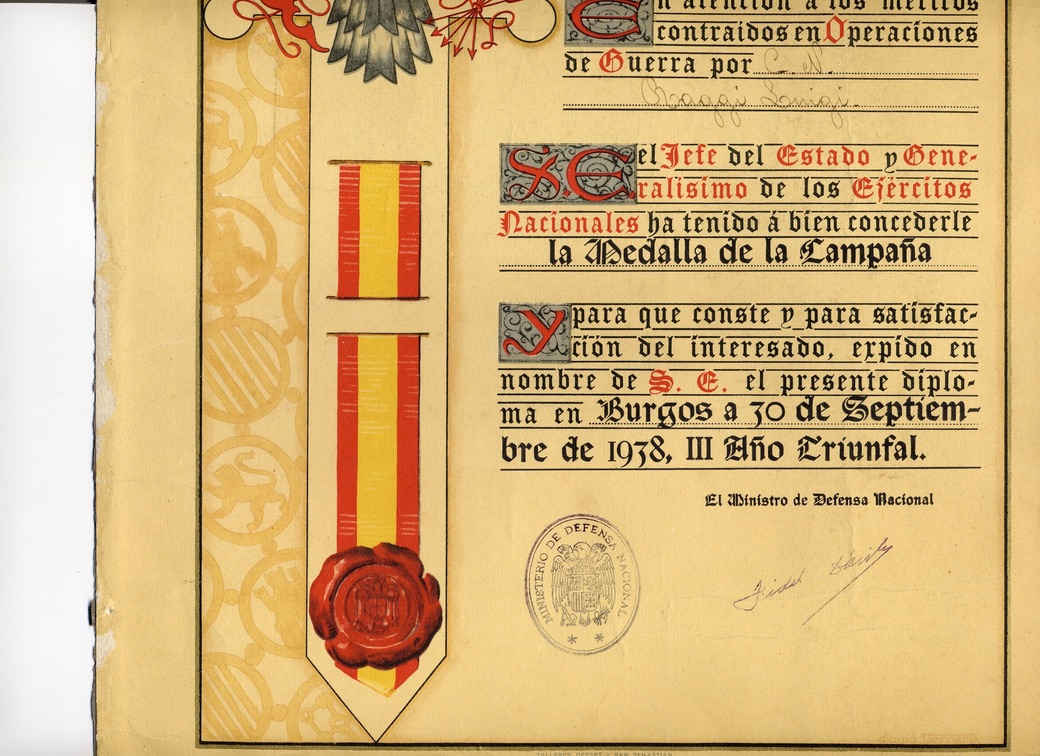 En atención a los méritos
contraidos en Operaciones
de Guerra por C. N.
Raggi Luigi.
S.E. el Jefe del Estado y Gene-
ralisimo de los Ejércitos
Nacionales ha tenido á bien concederle
la Medalla de la Campaña
Y para que conste y para satisfac-
ción del interesado, expido en
nombre de S. E. el presente diplo-
ma en Burgos a 30 de Septiem-
bre de 1938, III Año Triunfal.
El Ministro de Defensa Nacional
MINISTERIO DE DEFENSA NACIONAL
Fidel Dávila
TALLERES OFFSET - SAN SEBASTIAN